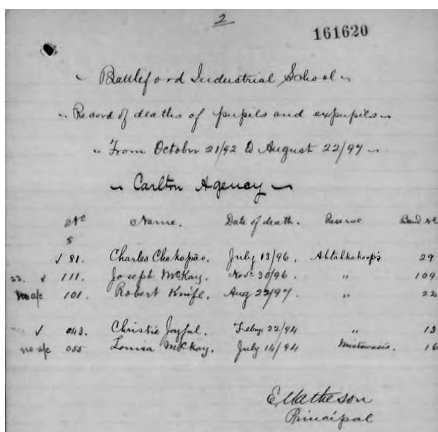 2
161620
Battleford Industrial School
Record of deaths of pupils and expupils
From October 21/92 to August 22/97
Carlton Agency
No Name. Date of death. Reserve Band No
s
√ 81. Charles July 13/96. 29
22. √ 111. Joseph McKay. Nov. 30/96. " 109
no a/c 101. Robert Knife. Aug 22/97. " 22
√ 043. Christie Joyful. Feby. 22/94 " 13
no a/c 055 Louisa McKay. July 14/94 16
E Matheson
Principal